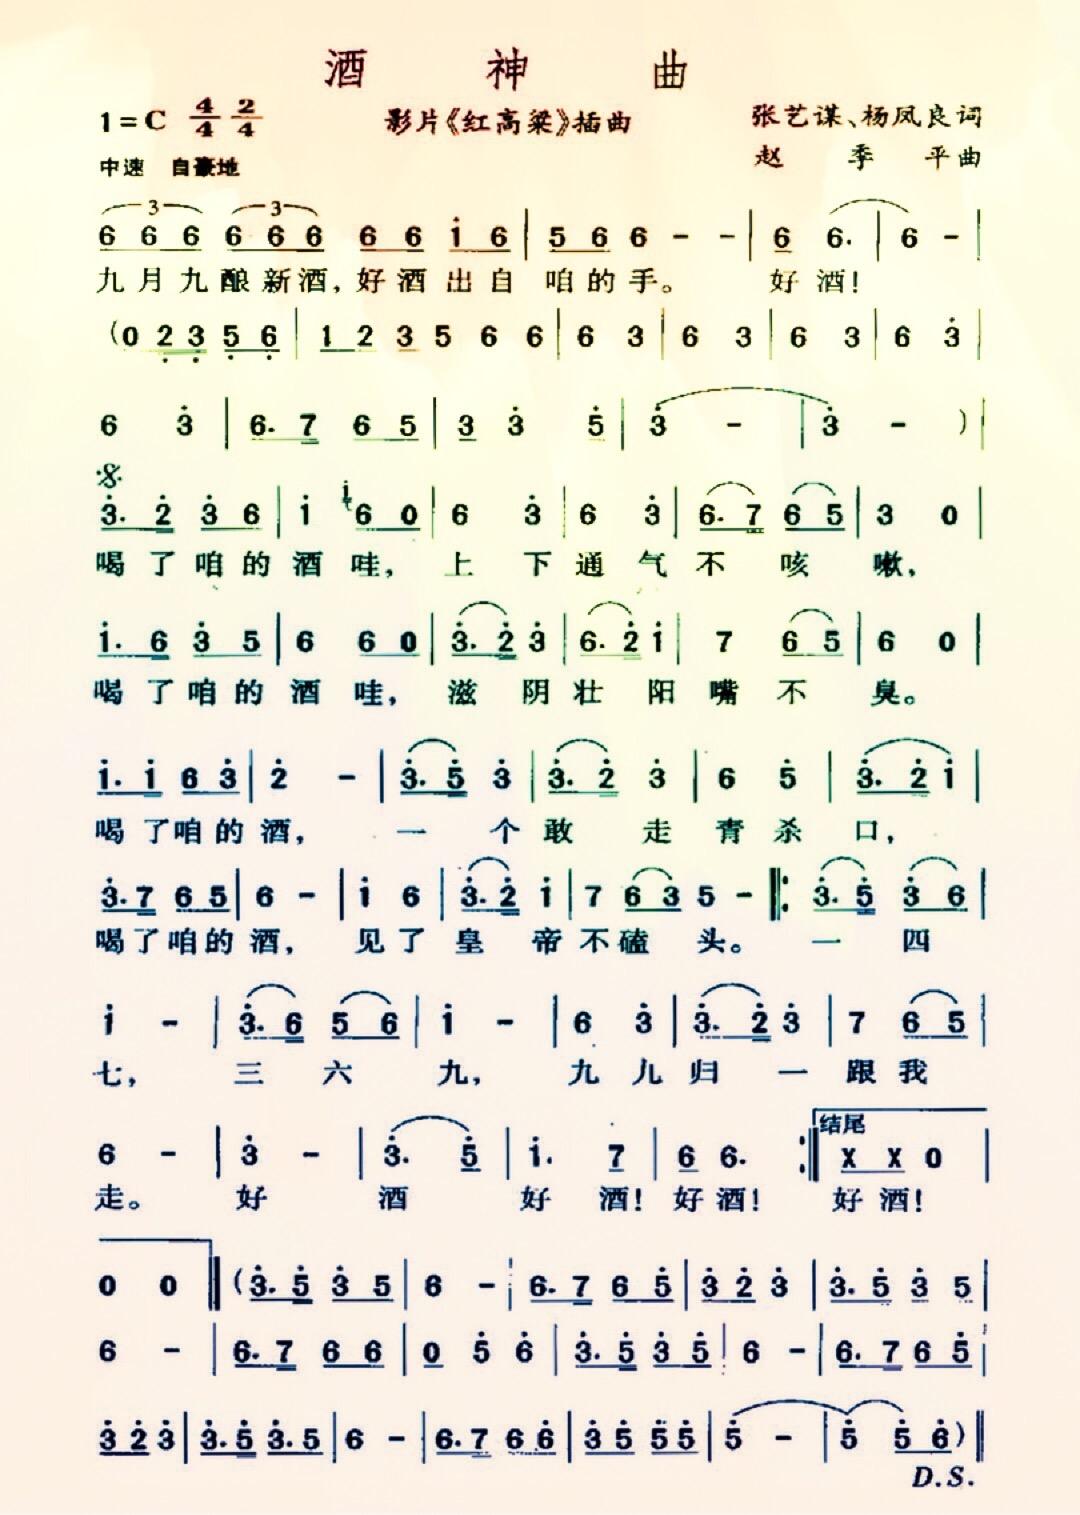 酒神曲
1=C 4/4 2/4 影片《红高粱》插曲 张艺谋、杨凤良词
中速 自豪地 赵季平曲
3 3
6 6 6 6 6 6 6 6 i 6 | 5 6 6 - - | 6 6. | 6 - |
九月九酿新酒,好酒出自咱的手。 好酒!
(0 2 3 5 6 | 1 2 3 5 6 6 | 6 3 | 6 3 | 6 3 | 6 3 |
6 3 | 6. 7 6 5 | 3 3 5 | 3 - | 3 - ) |
3. 2 3 6 | i i 6 0 | 6 3 | 6 3 | 6. 7 6 5 | 3 0 |
喝了咱的酒哇,上下通气不咳嗽,
i. 6 3 5 | 6 6 0 | 3. 2 3 | 6. 2 i | 7 6 5 | 6 0 |
喝了咱的酒哇,滋阴壮阳嘴不臭。
i. i 6 3 | 2 - | 3. 5 3 | 3. 2 3 | 6 5 | 3. 2 i |
喝了咱的酒,一个敢走青杀口,
3. 7 6 5 | 6 - | i 6 | 3. 2 i | 7 6 3 5 - |: 3. 5 3 6 |
喝了咱的酒,见了皇帝不磕头。一四
i - | 3. 6 5 6 | i - | 6 3 | 3. 2 3 | 7 6 5 |
七,三六九,九九归一跟我
结尾
6 - | 3 - | 3. 5 | i. 7 | 6 6. :| X X 0 |
走。好酒好酒!好酒!好酒!
0 0 || (3. 5 3 5 | 6 - | 6. 7 6 5 | 3 2 3 | 3. 5 3 5 |
6 - | 6. 7 6 6 | 0 5 6 | 3. 5 3 5 | 6 - | 6. 7 6 5 |
3 2 3 | 3. 5 3. 5 | 6 - | 6. 7 6 6 | 3 5 5 5 | 5 - | 5 5 6 ) ||
D.S.